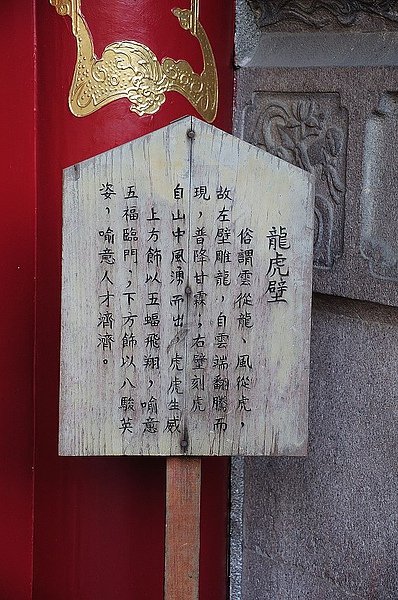 龍虎壁
俗謂雲從龍、風從虎，
故左壁雕龍，自雲端翻騰而
現，普降甘霖；右壁刻虎
自山中風湧而出，虎虎生威
上方飾以五蝠飛翔，喻意
五福臨門；下方飾以八駿英
姿，喻意人才濟濟。